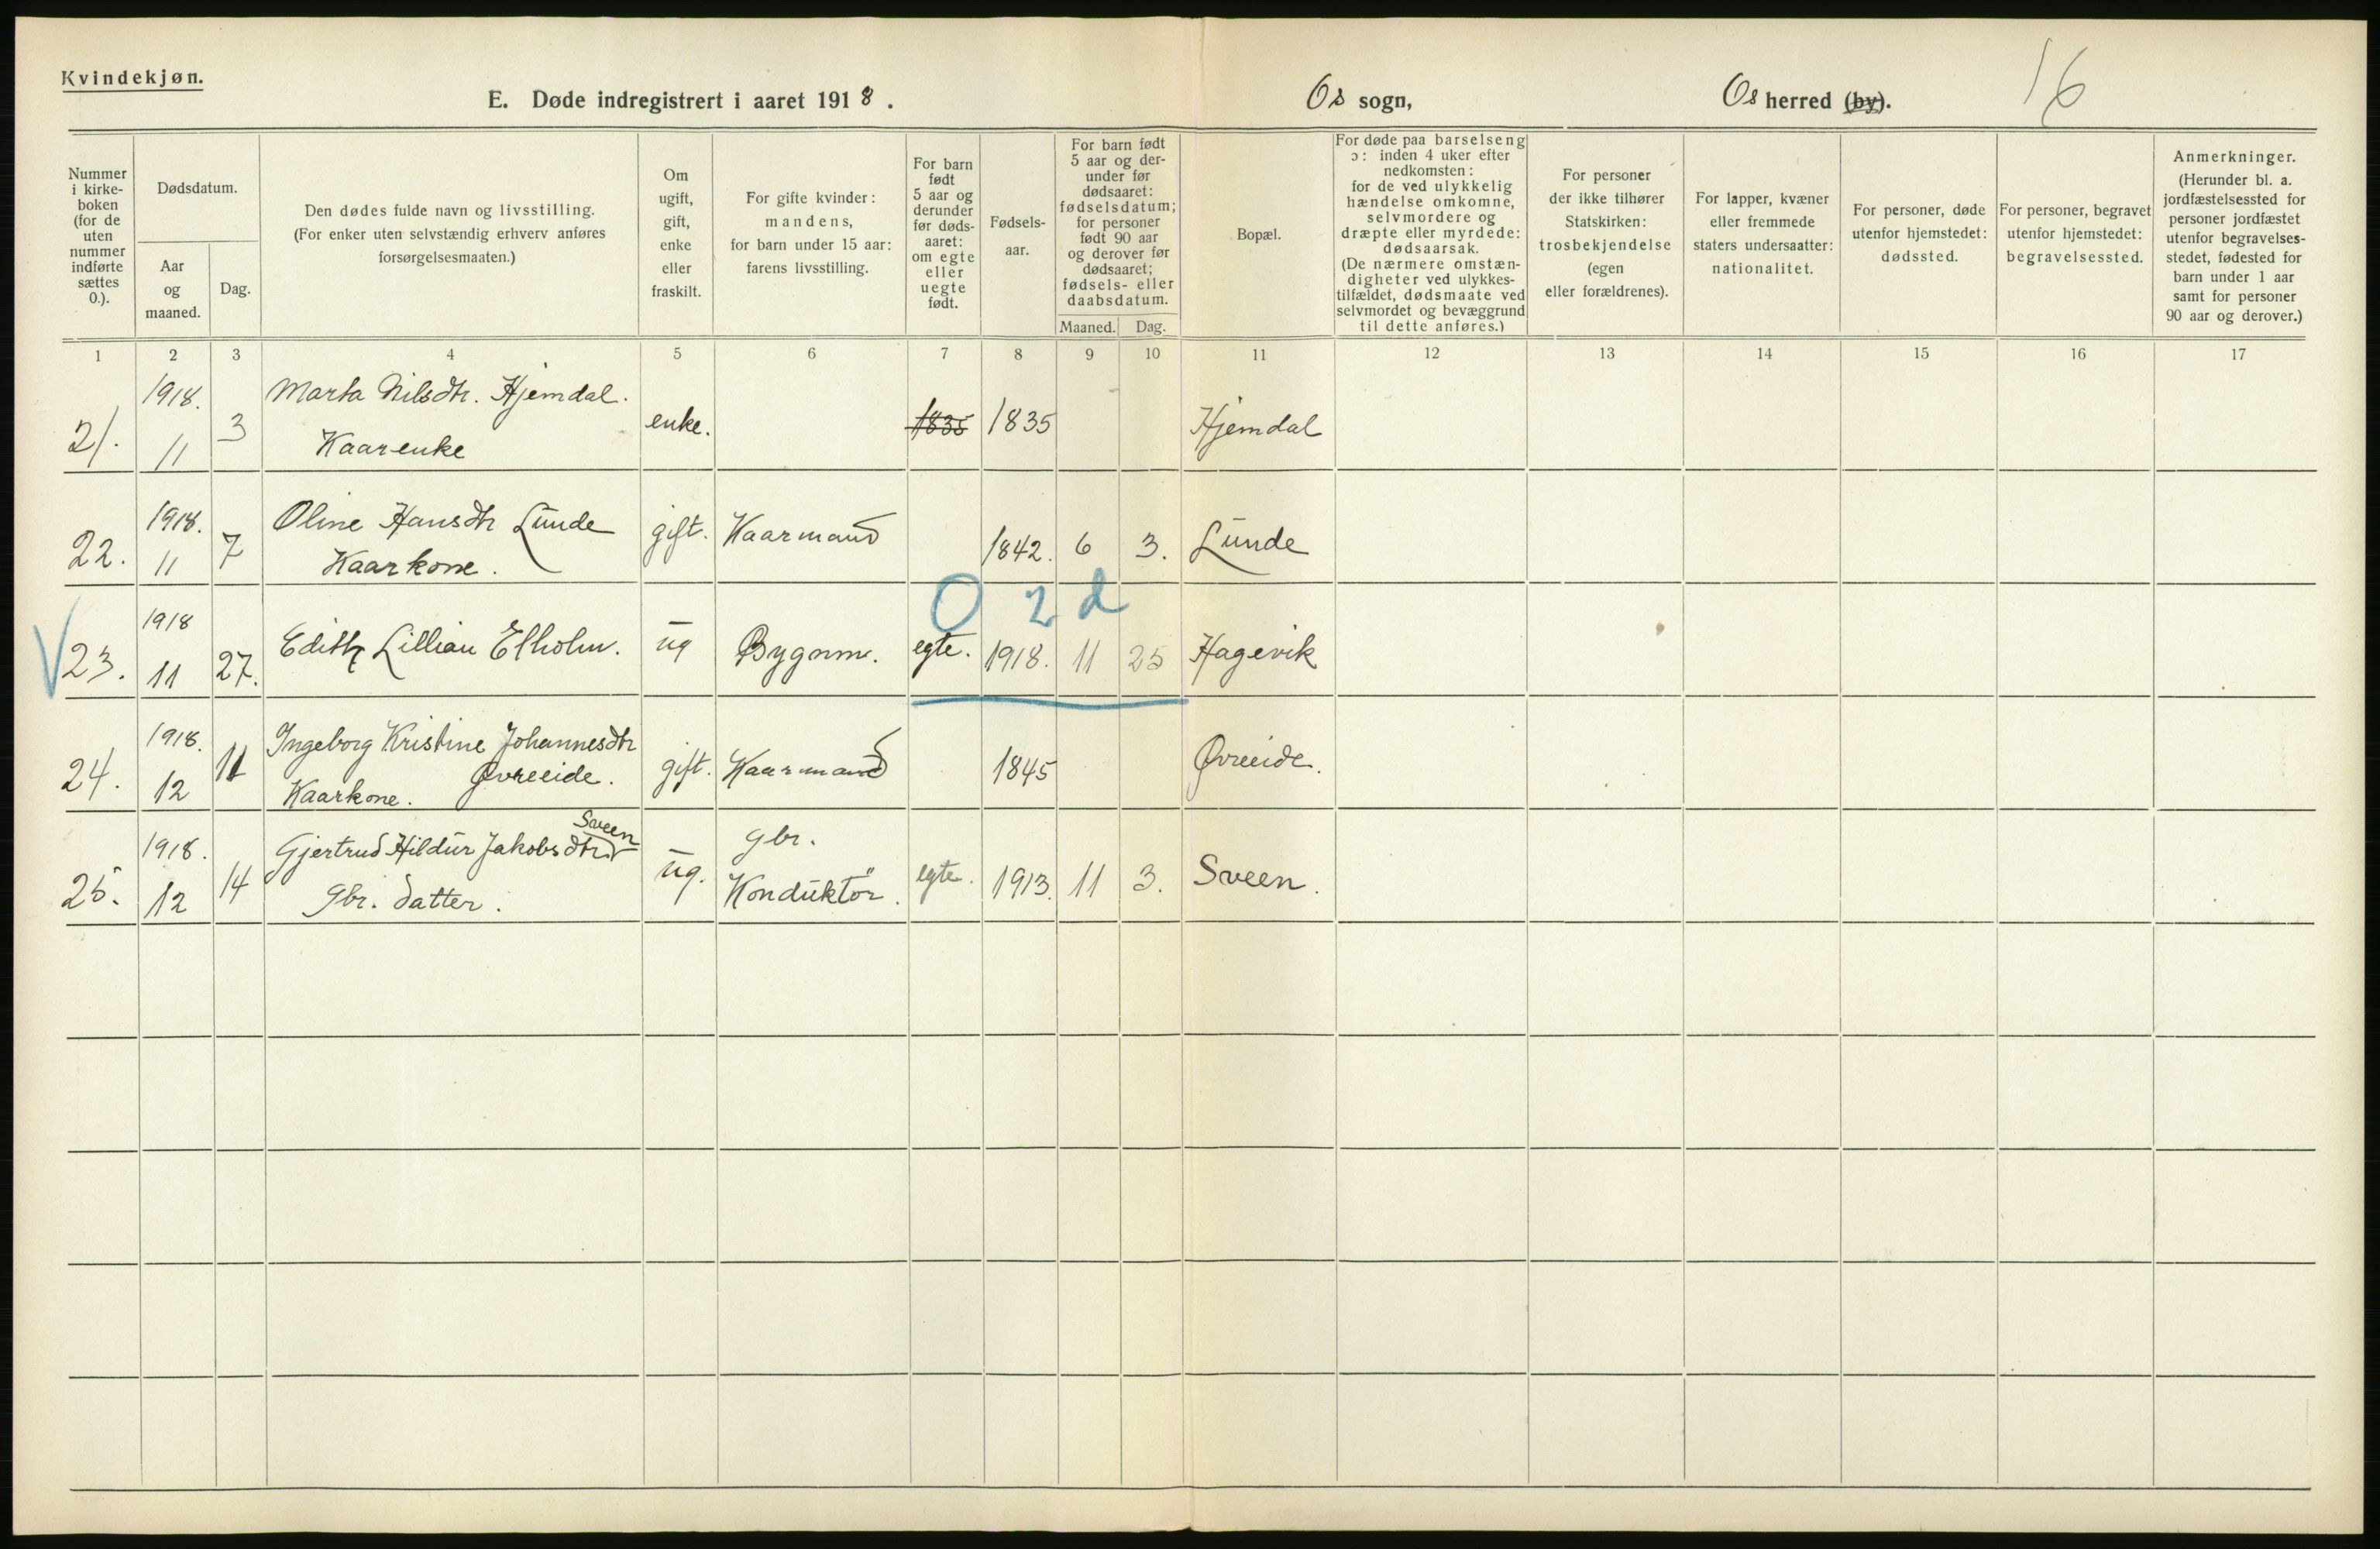 Kvindekjøn.
E. Døde indregistrert i aaret 1918.
Os sogn,
Os herred (by).
16
Nummer
i kirke-
boken
(for de
uten
nummer
indførte
sættes
0.).
Dødsdatum.
Aar
og
maaned.
Dag.
Den dødes fulde navn og livsstilling.
(For enker uten selvstændig erhverv anføres
forsørgelsesmaaten.)
Om
ugift,
gift,
enke
eller
fraskilt.
For gifte kvinder:
mandens,
for barn under 15 aar:
farens livsstilling.
For barn
født
5 aar og
derunder
før døds-
aaret:
om egte
eller
uegte
født.
Fødsels-
aar.
For barn født
5 aar og der-
under før
dødsaaret:
fødselsdatum;
for personer
født 90 aar
og derover før
dødsaaret;
fødsels- eller
daabsdatum.
Maaned.
Dag.
Bopæl.
For døde paa barselseng
ɔ: inden 4 uker efter
nedkomsten:
for de ved ulykkelig
hændelse omkomne,
selvmordere og
dræpte eller myrdede:
dødsaarsak.
(De nærmere omstæn-
digheter ved ulykkes-
tilfældet, dødsmaate ved
selvmordet og bevæggrund
til dette anføres.)
For personer
der ikke tilhører
Statskirken:
trosbekjendelse
(egen
eller forældrenes).
For lapper, kvæner
eller fremmede
staters undersaatter:
nationalitet.
For personer, døde
utenfor hjemstedet:
dødssted.
For personer, begravet
utenfor hjemstedet:
begravelsessted.
Anmerkninger.
(Herunder bl. a.
jordfæstelsessted for
personer jordfæstet
utenfor begravelses-
stedet, fødested for
barn under 1 aar
samt for personer
90 aar og derover.)
1 2 3 4 5 6 7 8 9 10 11 12 13 14 15 16 17
21. 1918. 11 3 Marta Nilsdtr. Hjemdal.
Kaarenke
enke. 1835 1835 Hjemdal
22. 1918. 11 7 Oline Hansdtr Lunde
Kaarkone.
gift. Kaarmand 1842. 6 3. Lunde
0 2 d
23. 1918 11 27. Edith Lillian Elholm. ug Bygnm. egte. 1918. 11 25 Hagevik
24. 1918. 12 11 Ingeborg Kristine Johannesdtr
Kaarkone. Øvreeide.
gift. Kaarmand 1845 Øvreeide.
25. 1918. 12 14 Gjertrud Hildur Jakobsdtr Sveen
Gbr. datter.
ug. gbr.
Konduktör. egte. 1913. 11 3. Sveen.